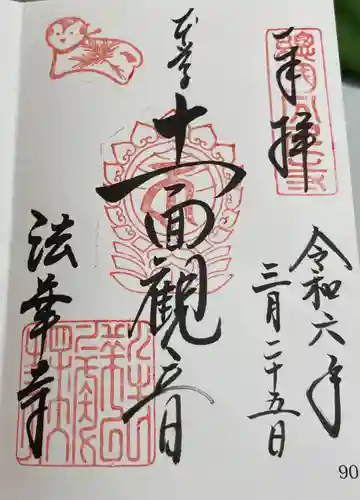 奉拝
令和六年
三月二十五日
本尊
十一面観音
法華寺
90